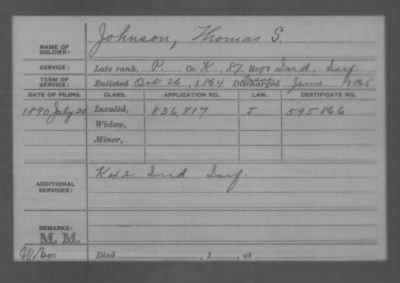 Johnson, Thomas S.
NAME OF SOLDIER:
SERVICE: Late rank, P. Co. K, 87 Reg't Ind. Inf.
TERM OF SERVICE: Enlisted Oct 26, 1864 Discharged June, 1865
DATE OF FILING. CLASS. APPLICATION NO. LAW. CERTIFICATE NO.
1890 July 20 Invalid, 836,817 J 595866
Widow,
Minor,
ADDITIONAL SERVICES: K 42 Ind Inf.
REMARKS:
M. M.
Died , 1 , at